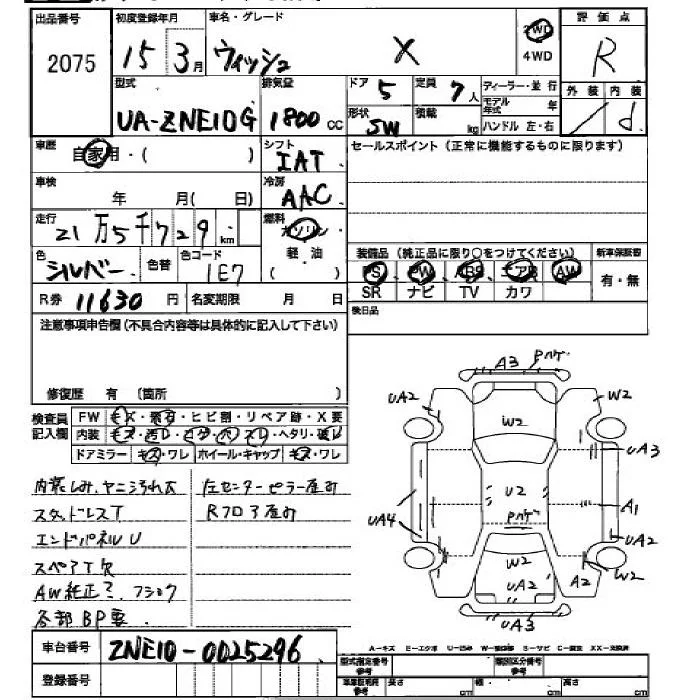 出品番号 初度登録年月 車名・グレード 評価点
2075 15 3月 ウィッシュ X 2WD 4WD R
型式 排気量 ドア 5 定員 7人 ディーラー・並行 外装 内装
UA-ZNE10G 1800cc 形状 SW 積載 kg モデル年式 年 ハンドル 左・右 d
車歴 自家用・( ) シフト IAT セールスポイント(正常に機能するものに限ります)
車検 年 月( 日) 冷房 AAC
走行 21万5千729km 燃料 ガソリン 軽油 ( )
色 シルバー 色替 色コード 1E7 装備品(純正品に限り○をつけてください) 新車保証書
PS PW ABS エアB AW 有・無
SR ナビ TV カワ
R券 11630円 名変期限 月 日 後日品
注意事項申告欄(不具合内容等は具体的に記入して下さい)
修復歴 有 (箇所 )
検査員記入欄 FW キズ・飛石・ヒビ割・リペア跡・X要
内装 キズ・汚レ・コゲ・ハンスレ・ヘタリ・破レ
ドアミラー キズ・ワレ ホイール・キャップ キズ・ワレ
内装しみ、ヤニ汚れ大 左センターピラー歪み
スタッドレスT Rフロア歪み
エンドパネルU
スペアT欠
AW純正?
各部BP要
A3 Pハゲ
UA2 W2
W2
UA3
U2
A1
UA4 Pハゲ UA2
W2
UA2 A2 W2
UA3
A-キズ E-エクボ U-凹み W-補修跡 S-サビ C-腐食 XX-交換済
車台番号 ZNE10-0025296 型式指定番号 参考 類別区分番号 参考
登録番号 長さ cm 幅 cm 高さ cm